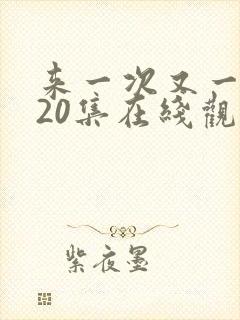 来一次又一
20集在线觀
紫夜墨